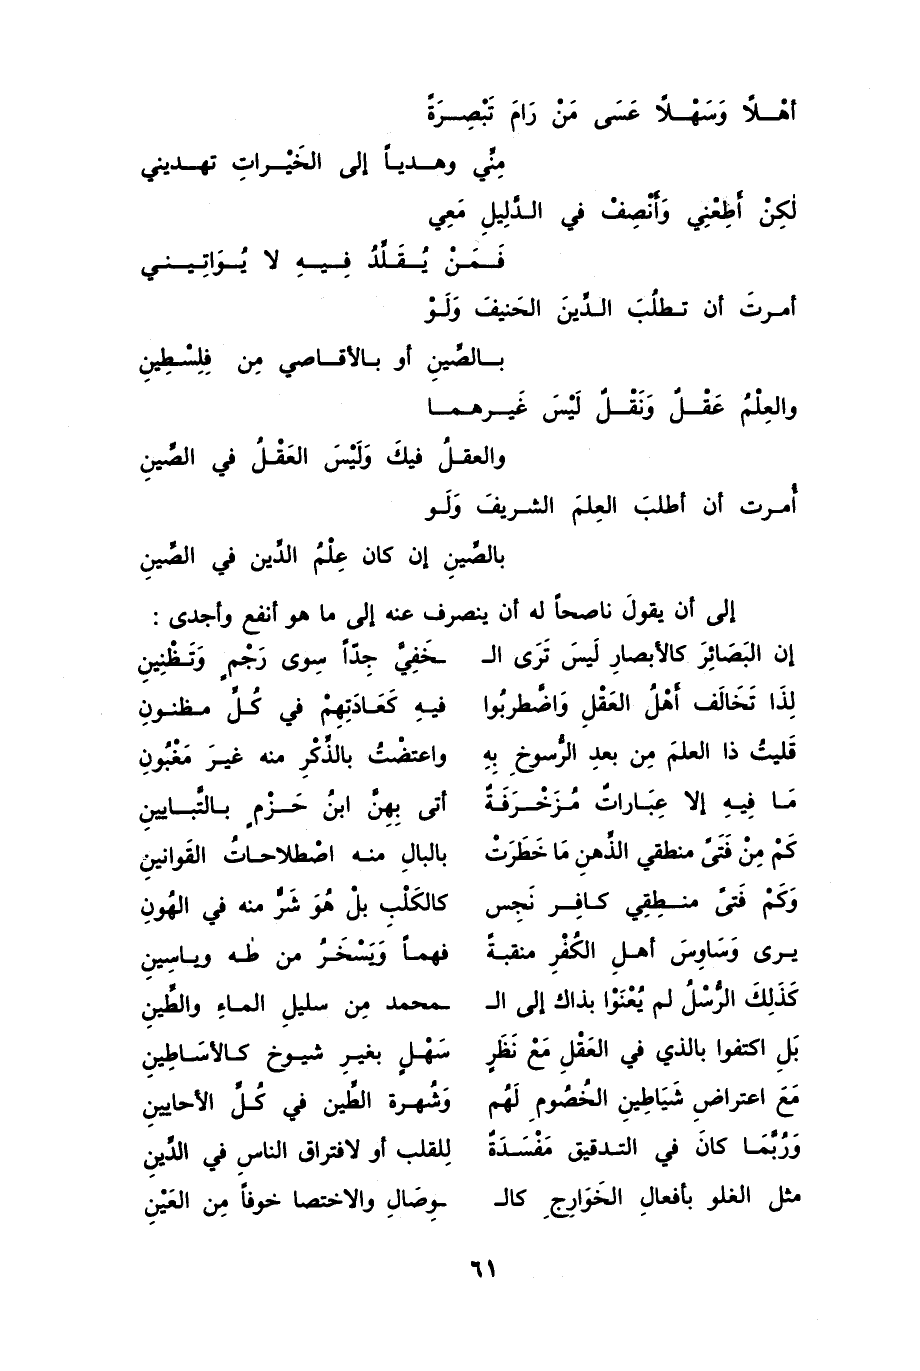 أهْـلاً وَسَهْـلاً عَسَى مَنْ رَامَ تَبْصِـرَةً
مِنّي وهـدياً إلى الخَيْـراتِ تهـديني
لكِنْ أَطِعْنِي وَأَنْصِفْ في الـدَّلِيلِ مَعِي
فَـمَـنْ يُـقَـلَّدُ فِـيـهِ لا يُـوَاتِيـنـي
أمرتَ أن تـطلُبَ الـدَّينَ الحَنيفَ وَلَـوْ
بـالصِّينِ أو بـالأقـاصي مِن فِلِسْـطِينِ
والعِلْمُ عَقْـلٌ وَنَقْـلٌ لَيْسَ غَيـرهـمـا
والعقـلُ فيكَ وَلَيْسَ العَقْـلُ في الصِّينِ
أُمـرت أن أطلبَ العِلمَ الشـريفَ وَلَـو
بالصِّينِ إن كان عِلْمُ الدَّين في الصِّينِ
إلى أن يقولَ ناصحاً له أن ينصرف عنه إلى ما هو أنفع وأجدى :
إن البَصَائِرَ كالأبصارِ لَيسَ تَرَى الـ ـخَفِيَّ جِدّاً سِوى رَجْمٍ وَتَـظْنِينِ
لِذَا تَخَالَف أَهْلُ العَقْلِ وَاضْطربُوا فيـهِ كَعَـادَتِهِمْ في كُـلِّ مـظنـونِ
قَليتُ ذا العلمَ مِن بعدِ الرُّسوخِ بِهِ واعتضْتُ بالذِّكْرِ منه غيـرَ مَغْبُونِ
مَـا فِيـهِ إلا عِبَـاراتٌ مُـزَخْـرَفَـةٌ أتى بِهِنَّ ابنُ حَـزْمٍ بـالتَّبـايينِ
كَمْ مِنْ فَتَىً منطقي الذَّهنِ مَا خَطَرَتْ بالبالِ منـه اصْطلاحـاتُ القَوانينِ
وَكَمْ فَتىً منـطِقِي كـافِـر نَجِس كالكَلْبِ بلْ هُوَ شَرٌّ منه في الهُونِ
يـرى وَسَاوِسَ أهـلِ الكُفْرِ منقبـةً فهمـاً وَيَسْخَـرُ من طٰـه ويـاسِينِ
كَذَلِكَ الرُّسْلُ لم يُعْنَوْا بذاك إلى الـ ـمحمد مِن سليلِ المـاءِ والطِّينِ
بَلِ اكتفوا بالذي في العَقْلِ مَعْ نَظَرٍ سَهْـلٍ بغيـرِ شيـوخ كـالأسَـاطِينِ
مَعَ اعتراضِ شَيَاطِينِ الخُصُومِ لَهُم وَشُهـرة الطِّين في كُـلِّ الأحايينِ
وَرُبَّمَـا كانَ في التـدقيق مَفْسَـدَةٌ لِلقلب أو لافتراق الناسِ في الدِّينِ
مثل الغلو بأفعالِ الخَوَارِجِ كالـ ـوِصَالِ والاختصا خوفاً مِن العَيْنِ
٦١